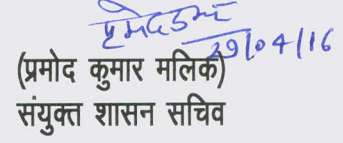 29/04/16
(प्रमोद कुमार मलिक)
संयुक्त शासन सचिव